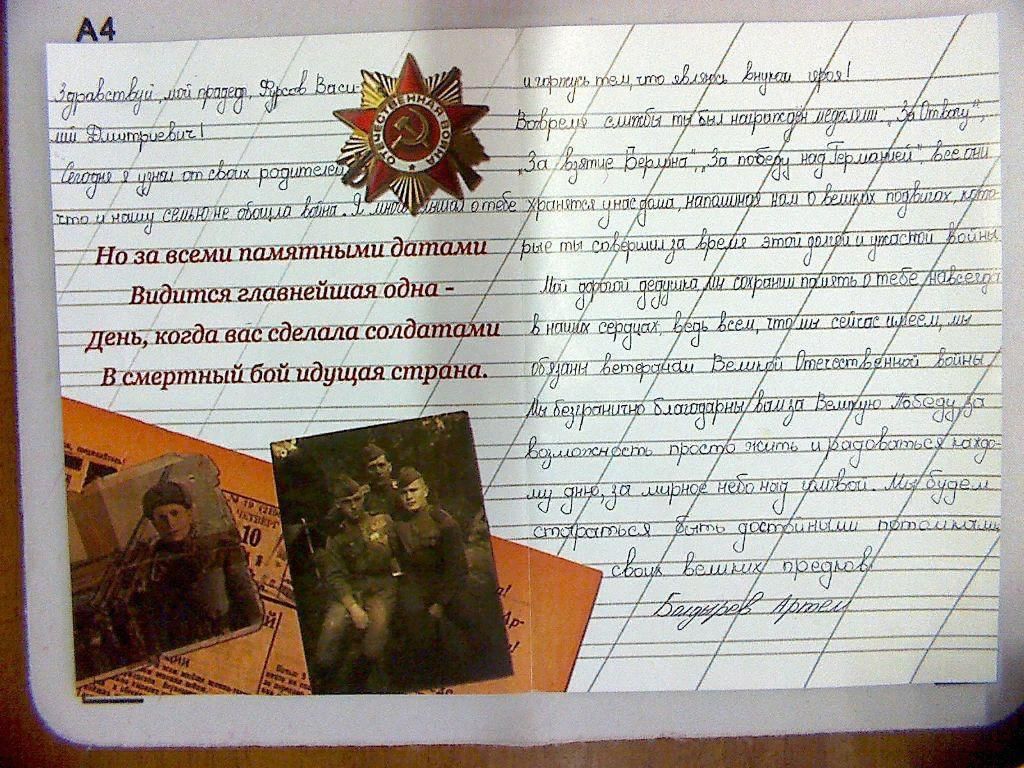 А4
Здравствуй, мой прадед, Фурсов Васи-
лий Дмитриевич!
Сегодня я узнал от своих родителей
что и нашу семью не обошла война. Я много о тебе
Но за всеми памятными датами
Видится главнейшая одна -
День, когда вас сделала солдатами
В смертный бой идущая страна.
ОТЕЧЕСТВЕННАЯ ВОЙНА
10
и горжусь тем, что являюсь внуком героя!
Вовремя службы ты был награждён медалями: „За Отвагу",
„За взятие Берлина", „За победу над Германией", все они
хранятся у нас дома, напоминая нам о великих подвигах, кото-
рые ты совершил за время этой долгой и ужасной войны
Мой дорогой дедушка, мы сохраним память о тебе навсегда
в наших сердцах, ведь всем, что мы сейчас имеем, мы
обязаны ветеранам Великой Отечественной войны
Мы безгранично благодарны вам за Великую Победу, за
возможность просто жить и радоваться каждо-
му дню, за мирное небо над головой. Мы будем
стараться быть достойными потомками
своих великих предков!
Артем